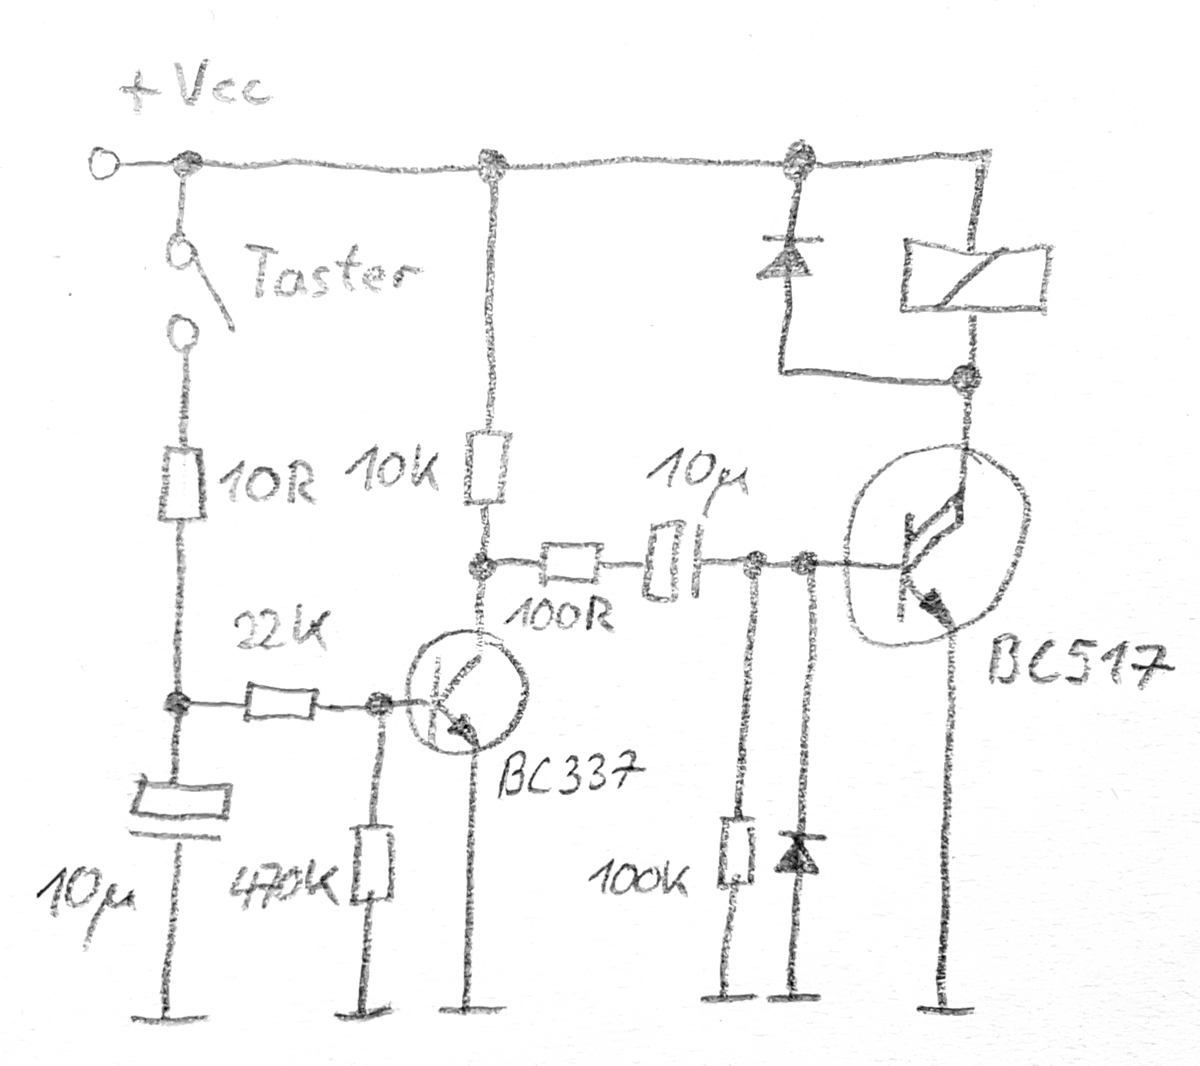 +Vcc
Taster
10R
10K
10µ
100R
22K
BC517
BC337
10µ
470K
100K